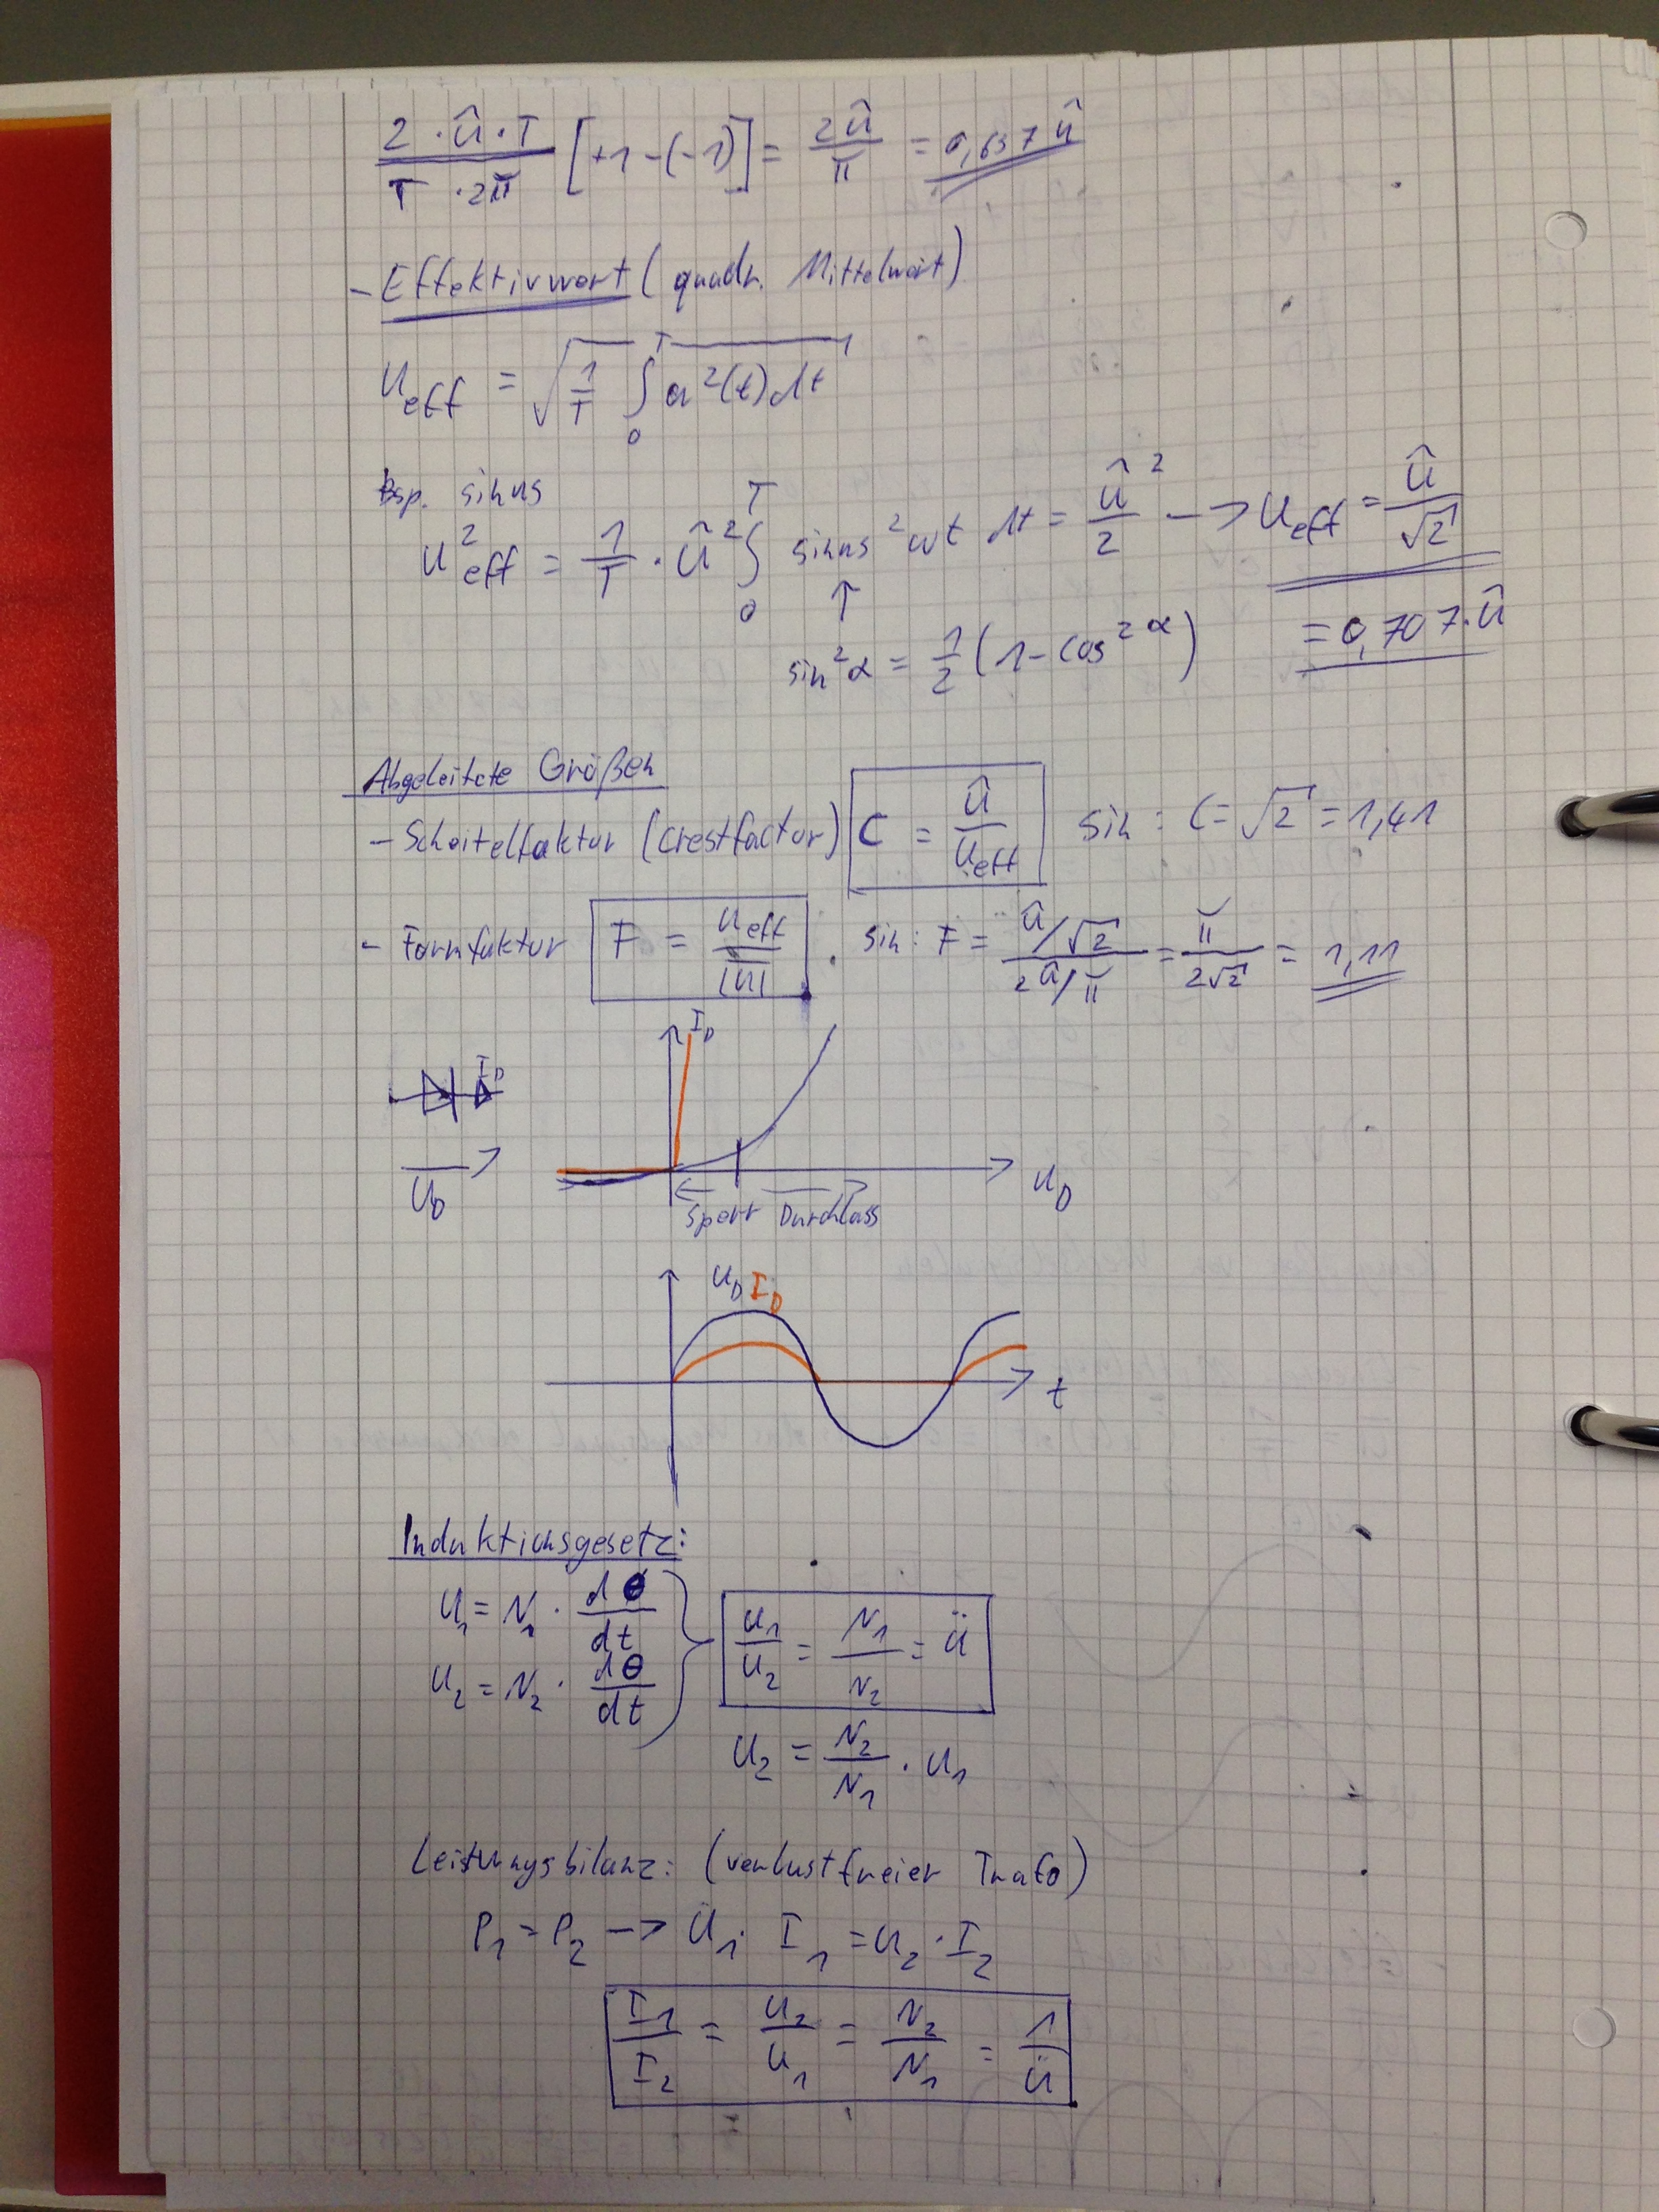 2 · û · T / T · 2π [+1 - (-1)] = 2û / π = 0,637 û
- Effektivwert (quadr. Mittelwert)
U eff = √ 1/T ∫₀ᵀ u²(t) dt
Bsp. sinus
U² eff = 1/T · û² ∫₀ᵀ sinus² ωt dt = û² / 2 —> U eff = û / √2
↑ = 0,707 · û
sin² α = 1/2 (1 - cos 2α)
Abgeleitete Größen
- Scheitelfaktor (Crestfactor) C = û / U eff sin : C = √2 = 1,41
- Formfaktor F = U eff / |u| . sin : F = û/√2 / 2û/π = π / 2√2 = 1,11
I_D
I_D
U_D
U_D
Sperr Durchlass
U_D I_D
t
Induktionsgesetz:
U₁ = N₁ · dΘ / dt
U₁ / U₂ = N₁ / N₂ = ü
U₂ = N₂ · dΘ / dt
U₂ = N₂ / N₁ · U₁
Leistungsbilanz: (verlustfreier Trafo)
P₁ = P₂ —> U₁ · I₁ = U₂ · I₂
I₁ / I₂ = U₂ / U₁ = N₂ / N₁ = 1 / ü